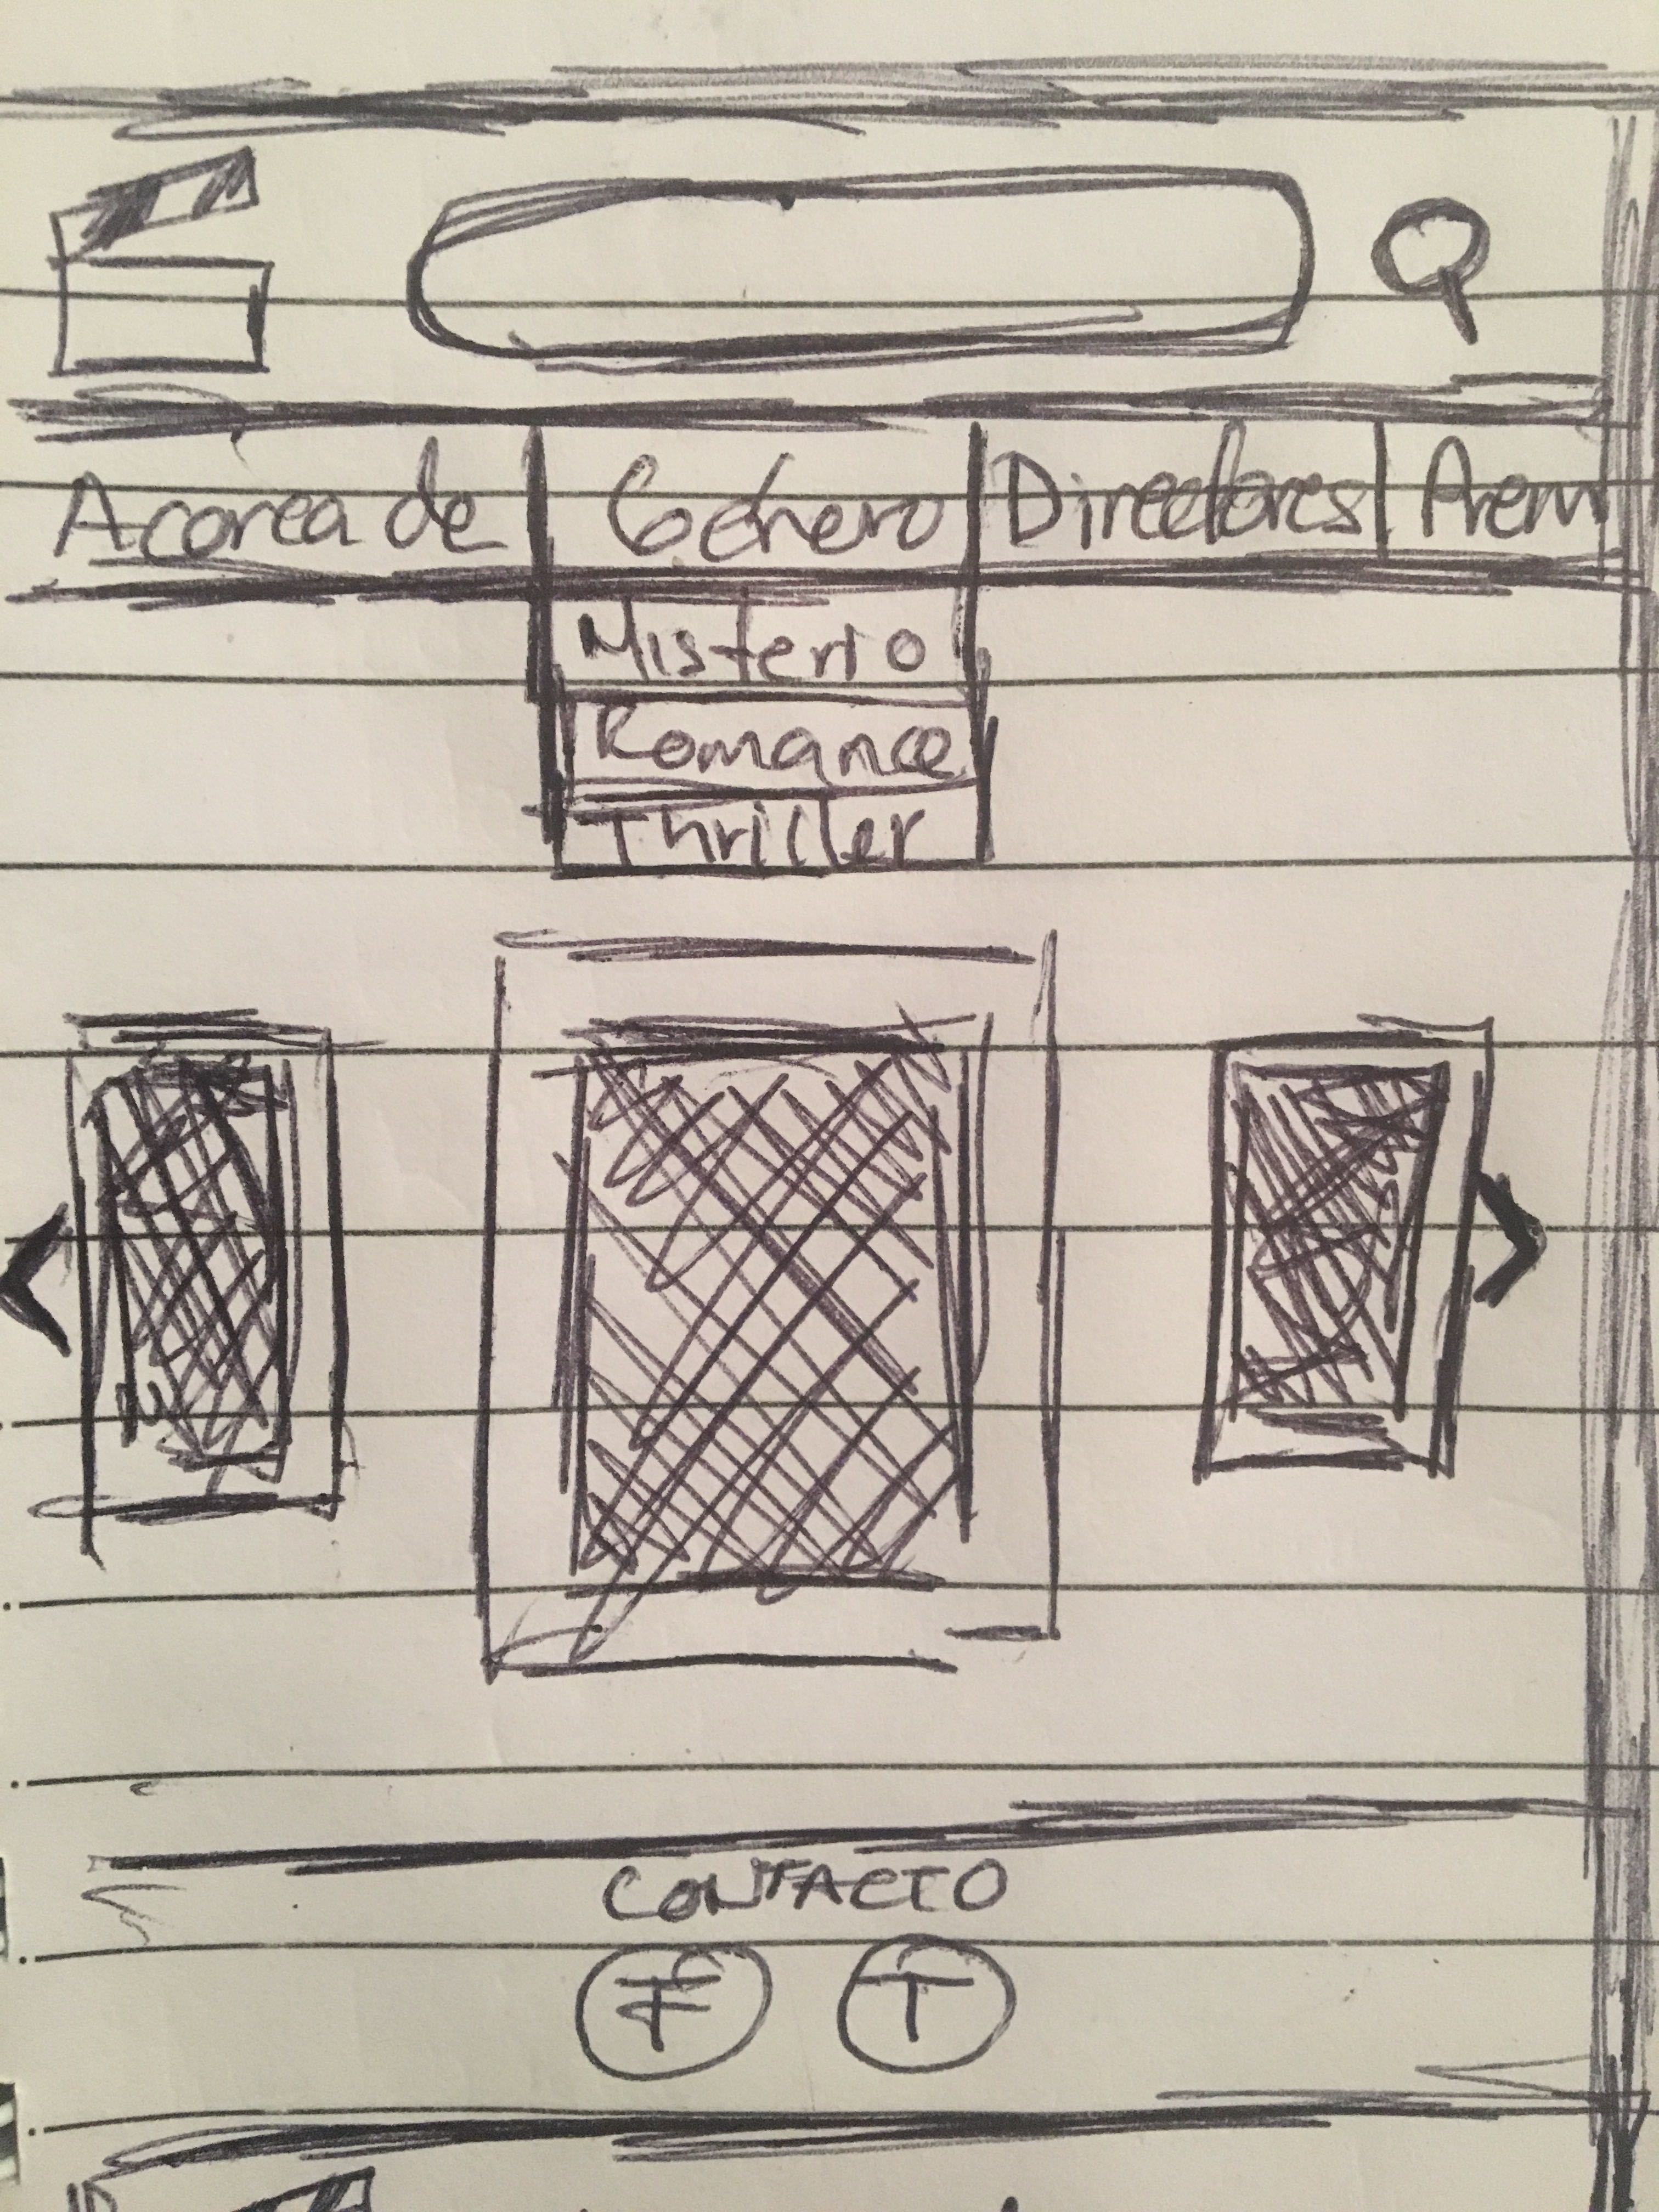 Acerca de Género Directores Prem
Misterio
Romance
Thriller
CONTACTO
F T